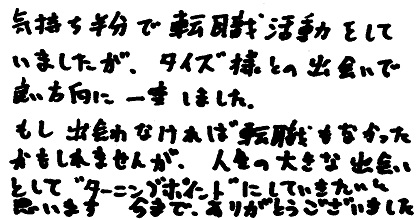 気持ち半分で転職活動をして
いましたが、タイズ様との出会いで
良い方向に一変しました。
もし出会わなければ転職もなかった
かもしれませんが、人生の大きな出会い
として"ターニングポイント"にしていきたいと
思います 今まで、ありがとうございました